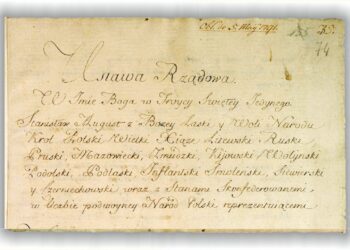 Obl. de 5. Maij 1791.
74
Ustawa Rządowa.
W Imie Boga w Trojcy Swiętey Jedynego
Stanisław August z Bożey Łaski y Woli Narodu
Krol Polski Wielki Xiąże Litewski Ruski
Pruski, Mazowiecki, Zmudzki, Kijowski Wołyński
Podolski, Podlaski Inflantski Smoleński, Siewierski
y Czerniechowski wraz z Stanami Skonfederowanemi,
w liczbie podwoyney Narod Polski reprezentuiącemi